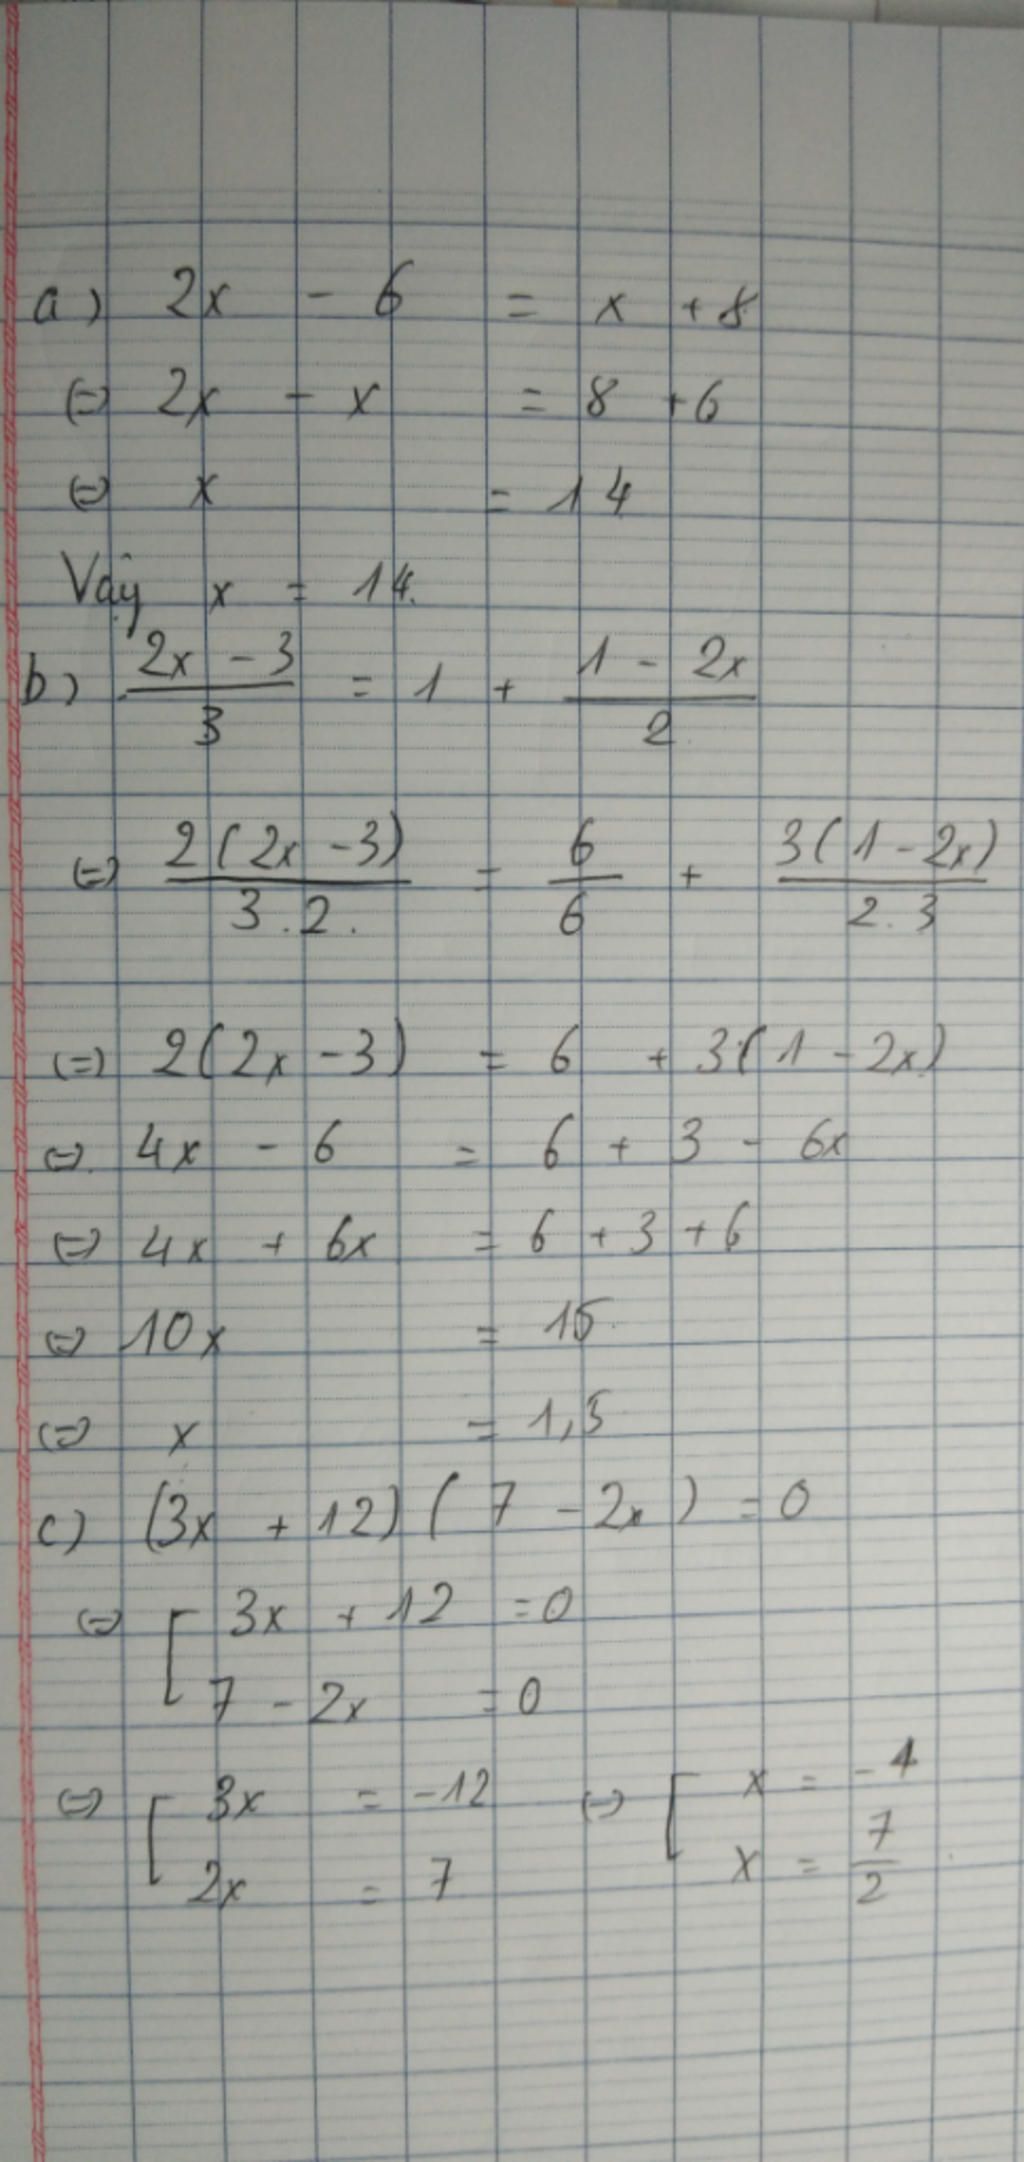 a) 2x - 6 = x + 8
(=) 2x - x = 8 + 6
(=) x = 14
Vậy x = 14.
b) \frac{2x - 3}{3} = 1 + \frac{1 - 2x}{2}
(=) \frac{2(2x - 3)}{3.2.} = \frac{6}{6} + \frac{3(1 - 2x)}{2.3}
(=) 2(2x - 3) = 6 + 3(1 - 2x)
(=) 4x - 6 = 6 + 3 - 6x
(=) 4x + 6x = 6 + 3 + 6
(=) 10x = 15
(=) x = 1,5
c) (3x + 12)(7 - 2x) = 0
(=) [ 3x + 12 = 0
7 - 2x = 0
(=) [ 3x = -12 (=) [ x = -4
2x = 7 x = \frac{7}{2}